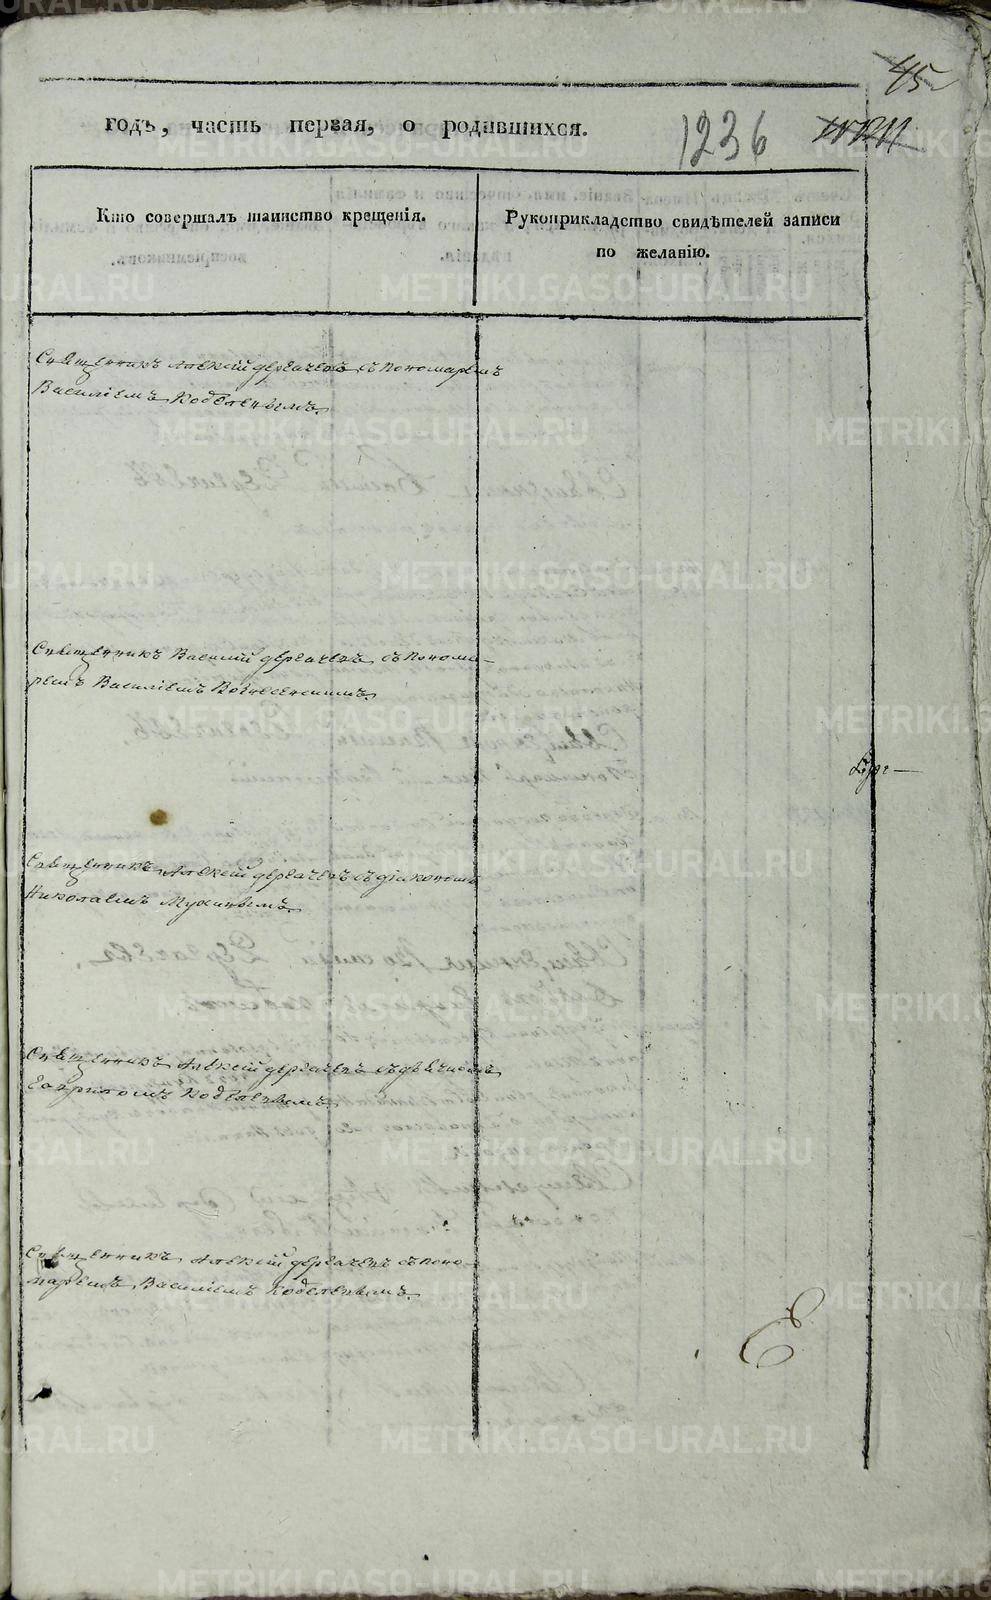 45
годъ, часть первая, о родившихся.
1236
Кто совершалъ таинство крещенія.
Рукоприкладство свидѣтелей записи
по желанію.
Священникъ Алексій Дергачевъ съ пономаремъ
Василіемъ Кобелевымъ.
Священникъ Василій Дергачевъ съ понома-
ремъ Василіемъ Вознесенскимъ.
Священникъ Алексій Дергачевъ съ діакономъ
Николаемъ Мухинымъ.
Священникъ Алексій Дергачевъ съ дьячкомъ
Гавриломъ
Священникъ Алексій Дергачевъ съ поно-
маремъ Василіемъ Кобелевымъ.
METRIKI.GASO-URAL.RU